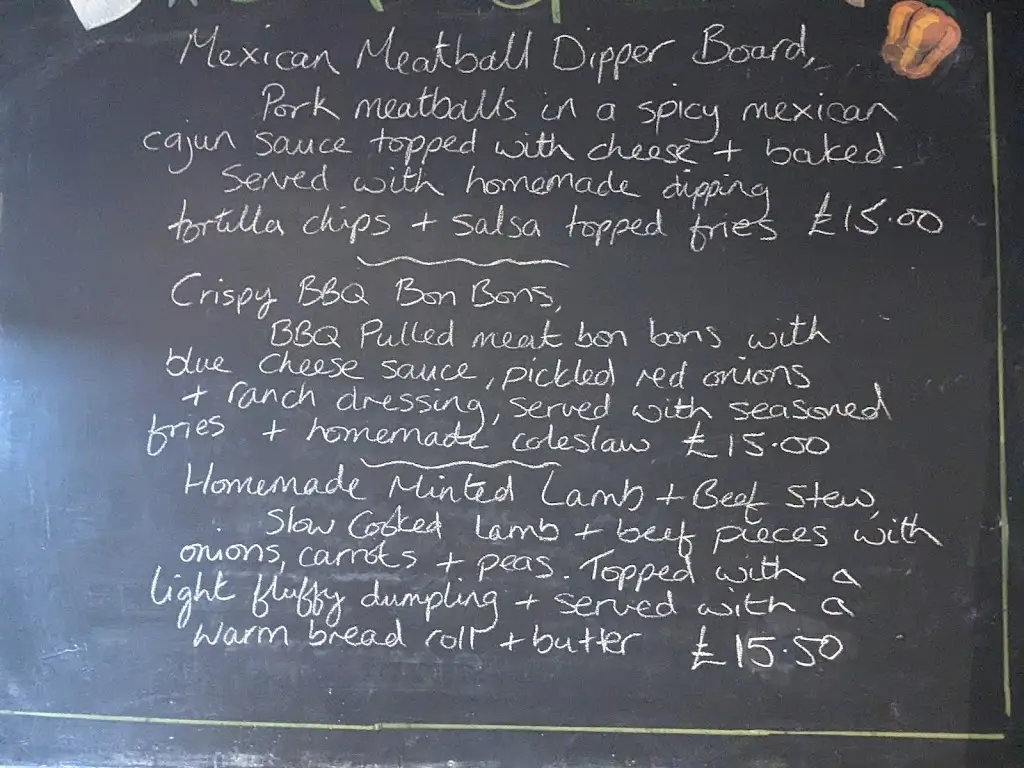 Mexican Meatball Dipper Board,
Pork meatballs in a spicy mexican
cajun sauce topped with cheese + baked.
Served with homemade dipping
tortilla chips + salsa topped fries £15.00
Crispy BBQ Bon Bons,
BBQ Pulled meat bon bons with
blue cheese sauce, pickled red onions
+ ranch dressing, served with seasoned
fries + homemade coleslaw £15.00
Homemade Minted Lamb + Beef Stew,
Slow Cooked lamb + beef pieces with
onions, carrots + peas. Topped with a
light fluffy dumpling + served with a
warm bread roll + butter £15.50